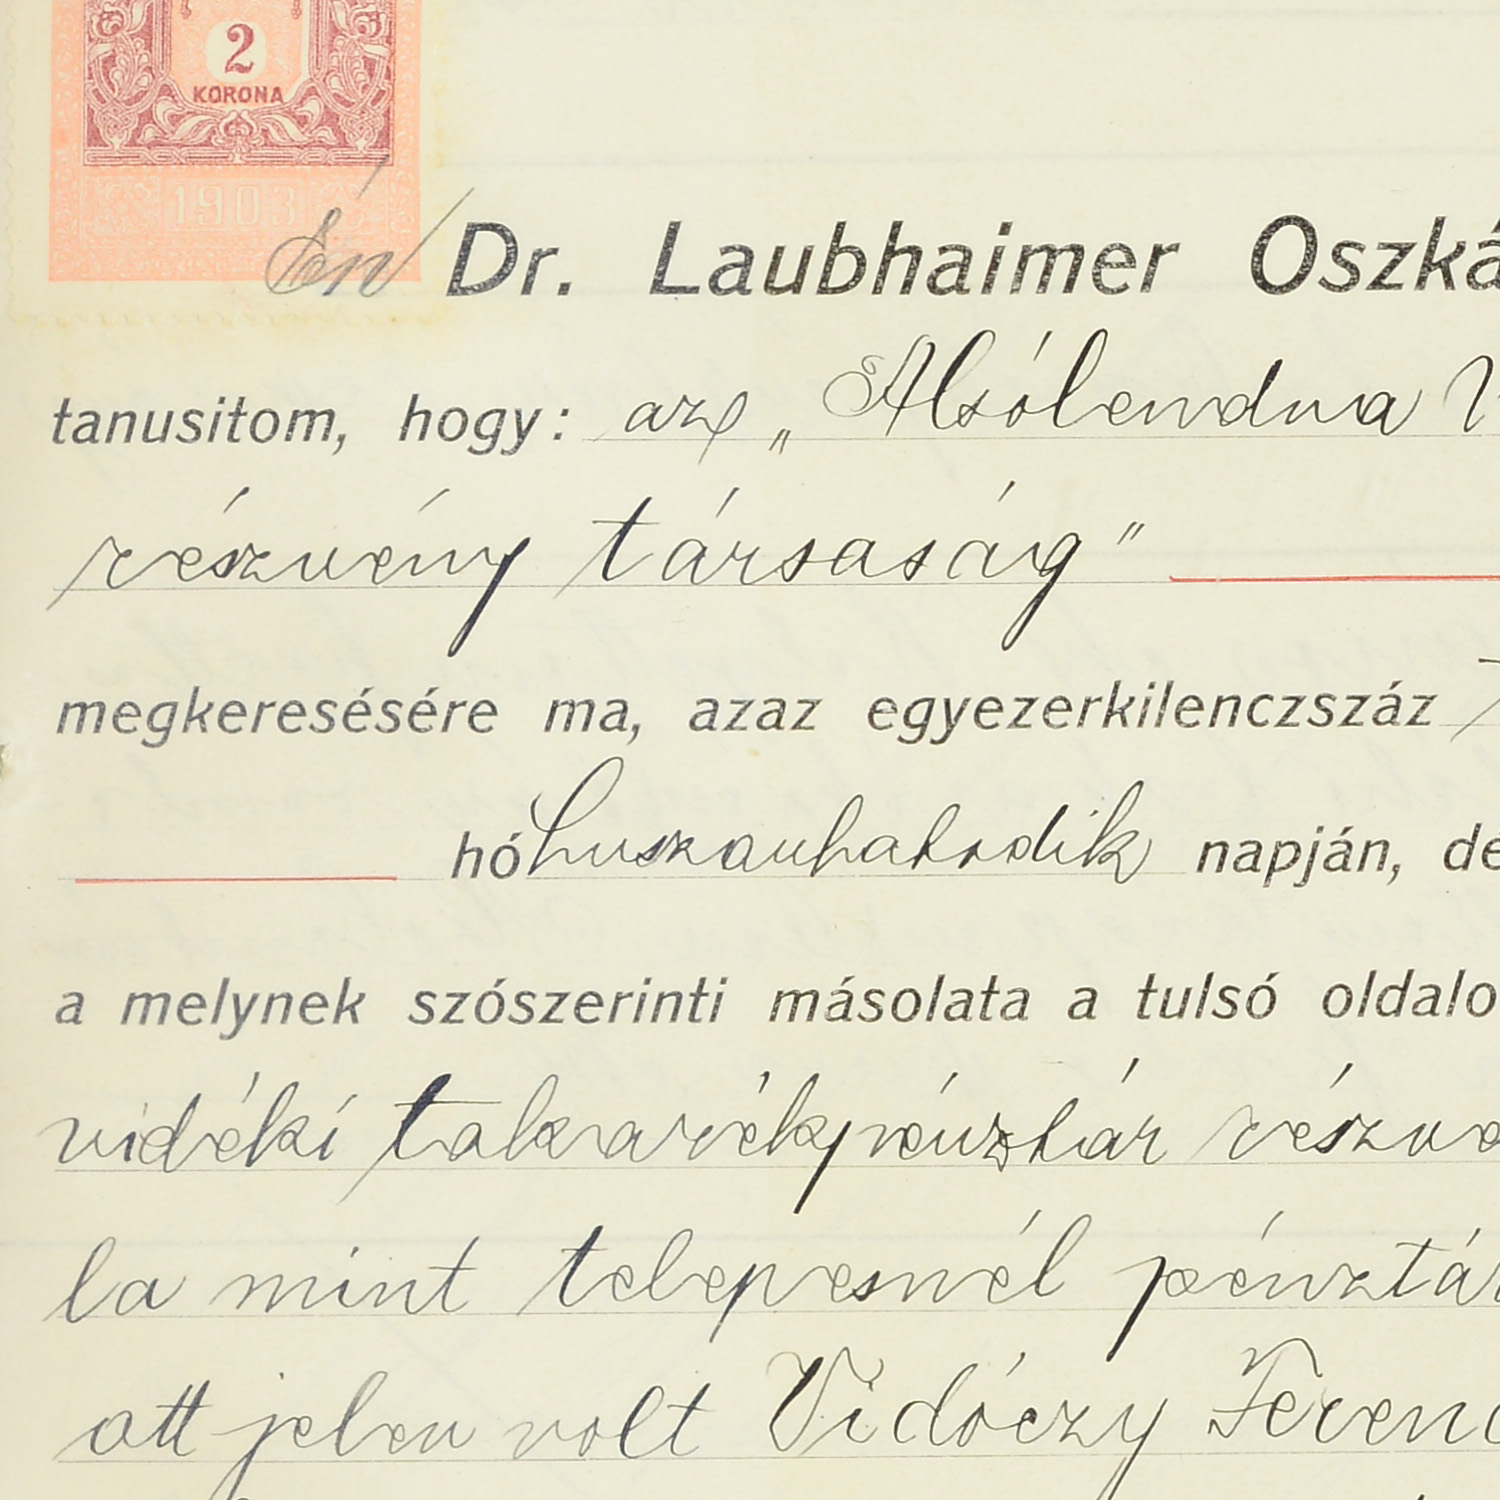 2
KORONA
1903
Én Dr. Laubhaimer Oszká
tanusitom, hogy: az „Alsólendva
részvény társaság"
megkeresésére ma, azaz egyezerkilenczszáz
hó huszonhatodik napján, de
a melynek szószerinti másolata a tulsó oldalo
vidéki takarékpénztár részve
la mint telepesnél pénztár
ott jelen volt Vidóczy Ferenc